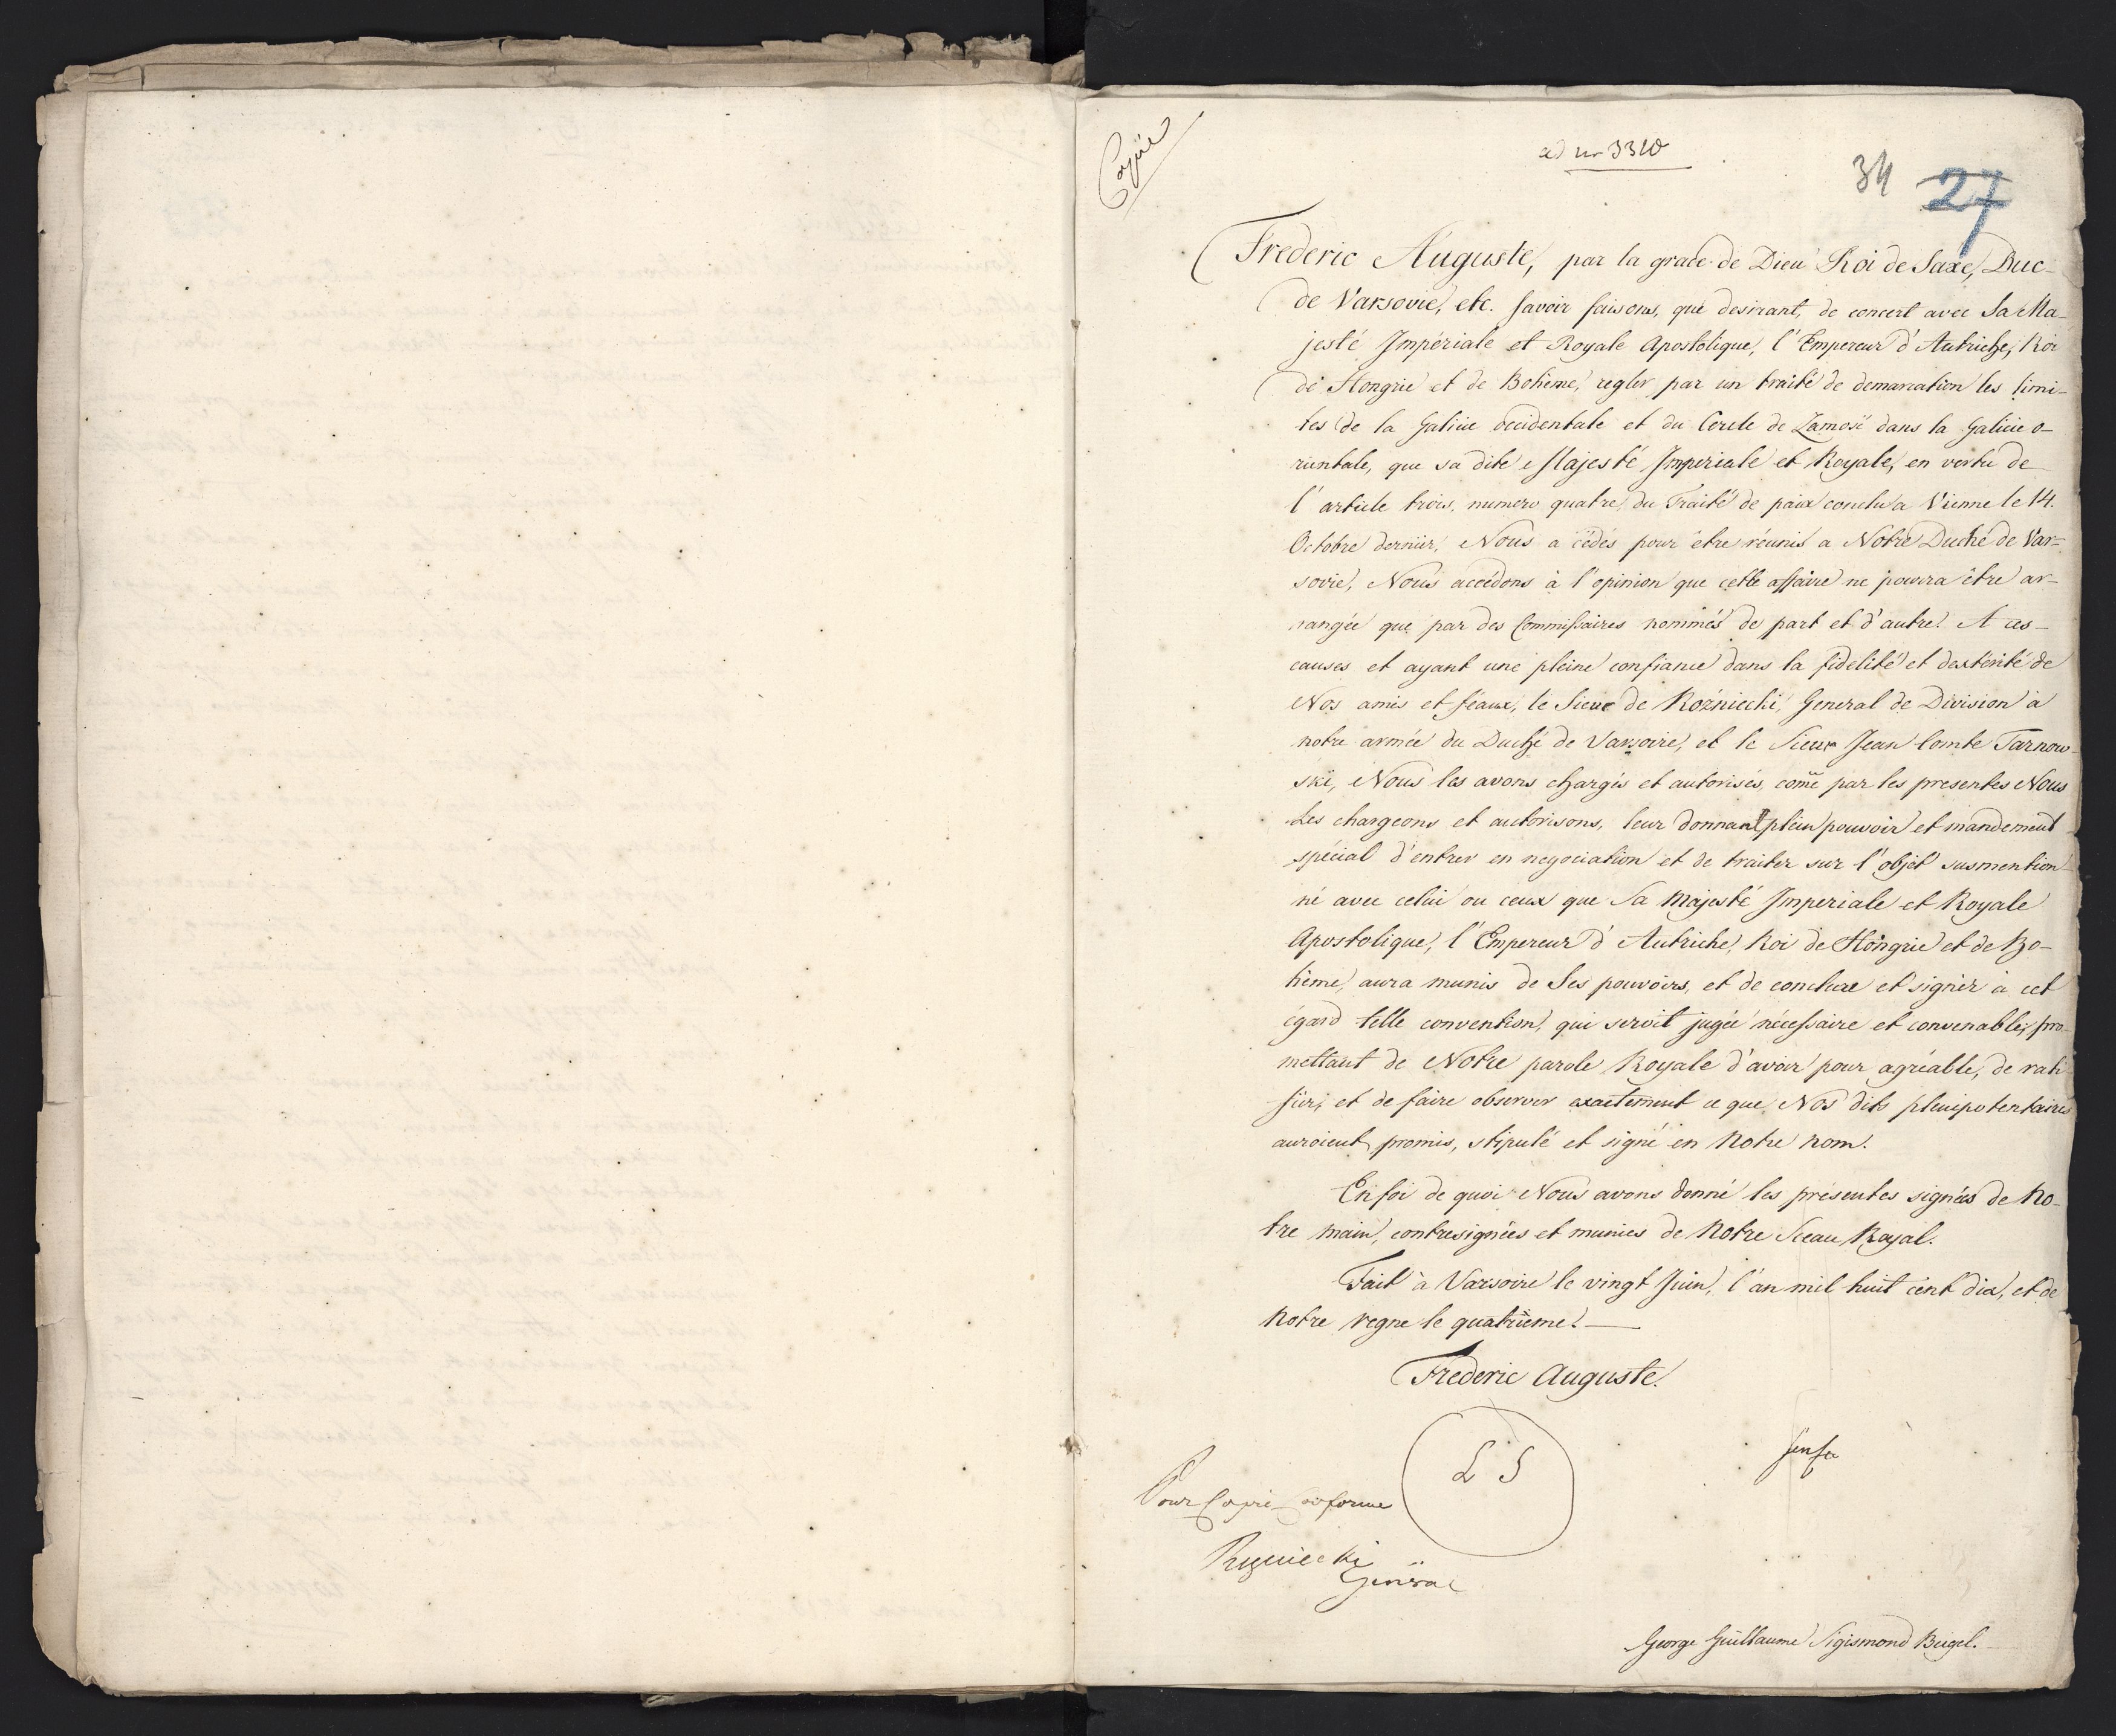 Copie
ad nr 3310
34 27
Frederic Auguste, par la grace de Dieu Roi de Saxe, Duc
de Varsovie, etc. savoir faisons, que desirant, de concert avec Sa Ma-
jesté Impériale et Royale Apostolique, l'Empereur d'Autriche, Roi
de Hongrie et de Bohème, regler par un traité de demarcation les limi-
tes de la Galicie occidentale et du Cercle de Zamosc dans la Galicie o-
rientale, que sa dite Majesté Imperiale et Royale, en vertu de
l'article trois, numero quatre, du Traité de paix conclu a Vienne le 14.
Octobre dernier, Nous a cédés pour être réunis a Notre Duché de Var=
sovie, Nous accédons à l'opinion que cette affaire ne pourra être ar-
rangée que par des Commissaires nommés de part et d'autre. A ces
causes et ayant une pleine confiance dans la fidelité et dextérité de
Nos amis et féaux, le Sieur de Rozniecki, General de Division à
notre armée du Duché de Varsovie, et le Sieur Jean Comte Tarnow-
ski, Nous les avons chargés et autorisés, com̄e par les presentes Nous
Les chargeons et autorisons, leur donnant plein pouvoir et mandement
spécial d'entrer en negociation et de traiter sur l'objet susmention-
né avec celui ou ceux que Sa Majesté Imperiale et Royale
Apostolique, l'Empereur d'Autriche, Roi de Hongrie et de Bo-
hème, aura munis de Ses pouvoirs, et de conclure et signer à cet
égard telle convention, qui seroit jugée nécessaire et convenable, pro-
mettant de Notre parole Royale d'avoir pour agréable, de rati-
fier, et de faire observer exactement ce que Nos dits plenipotentaires
auroient promis, stipulé et signé en Notre nom.
En foi de quoi Nous avons donné les présentes signées de No-
tre main, contresignées et munies de Notre Sceau Royal.
Fait à Varsovie le vingt Juin, l'an mil huit cent dix, et de
Notre regne le quatrieme.
Frederic Auguste.
L S
Senfft
Pour Copie Conforme
Rozniecki
General
George Guillaume Sigismond Bügel.